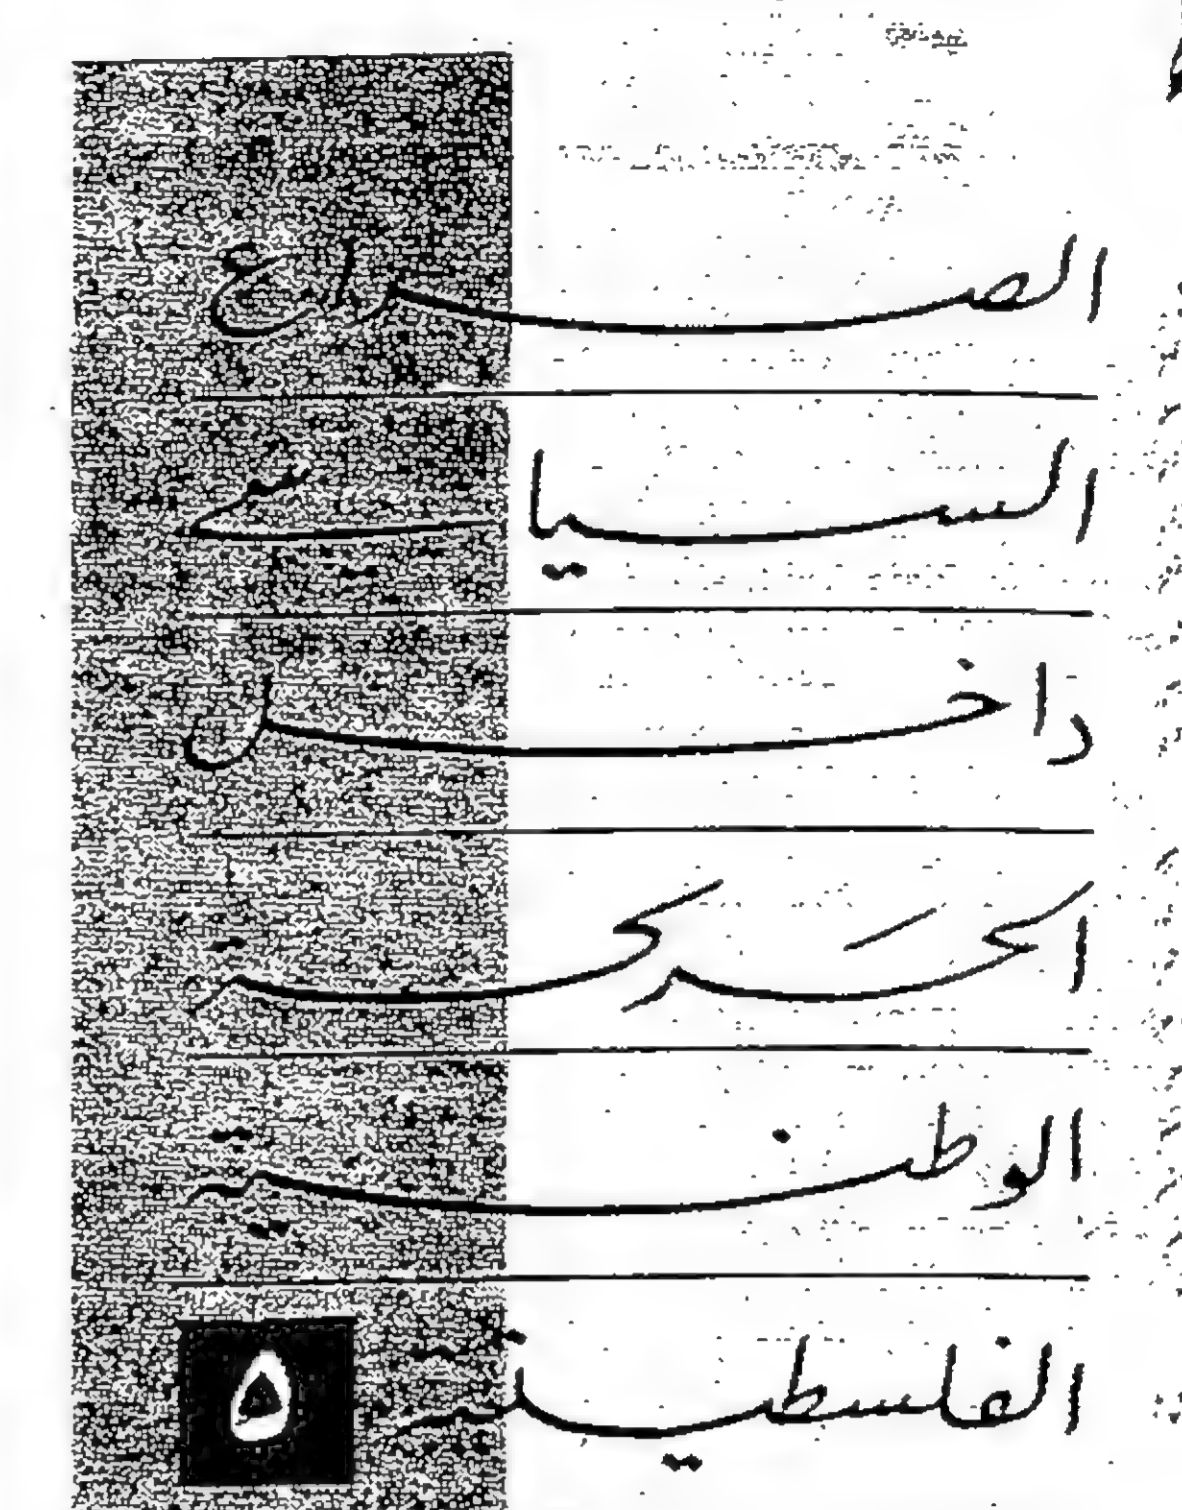 الصراع
السياسي
داخل
الحركة
الوطنية
الفلسطينية
٥